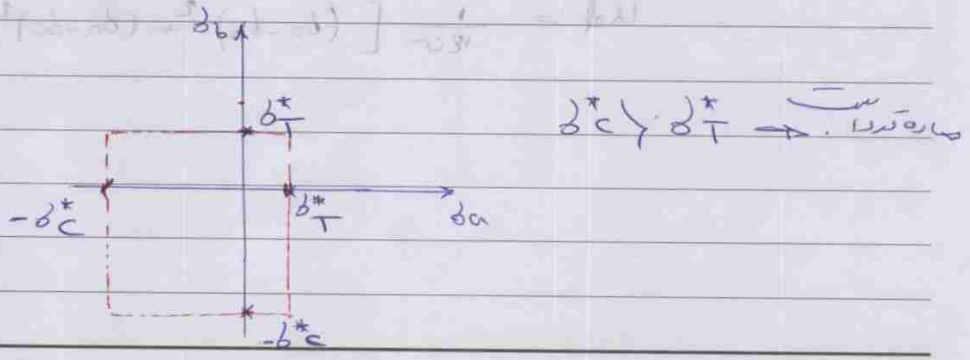 σ_b
σ*_T
σ*_C > σ*_T → ماده ترد است.
-σ*_C
σ*_T
σ_a
-σ*_C